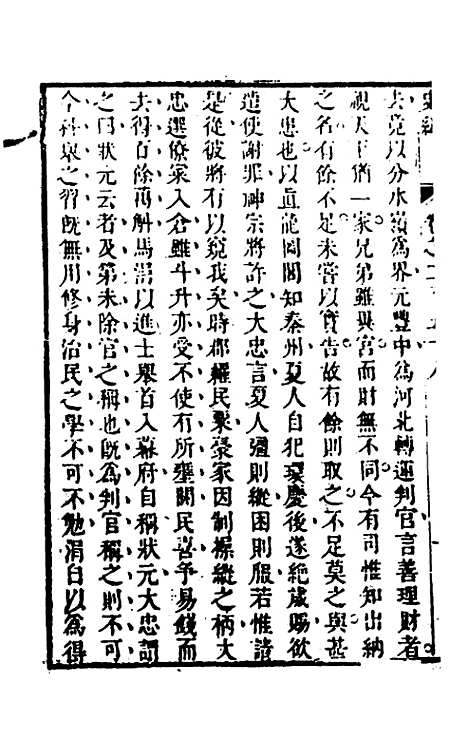 去竟以分水嶺為界元豐中為河北轉運判官言善理財者
視天下猶一家兄弟雖異宮而財無不同今有司惟知出納
之名有餘不足未嘗以實告故有餘則取之不足莫之與甚
大患也以直龍圖閣知秦州夏人自犯環慶後遂絶歲賜欲
遣使謝罪神宗將許之大忠言夏人彊則縱困則服若惟請
是從彼將有以窺我矣時郡糴民粟豪家因制操縱之柄大
忠選僚寀入倉雖斗升亦受不使有所壅閼民喜爭易錢而
去得百餘萬斛馬涓以進士舉首入幕府自稱狀元大忠謂
之曰狀元云者及第未除官之稱也既為判官稱之則不可
今科舉之習既無用修身治民之學不可不勉涓自以為得